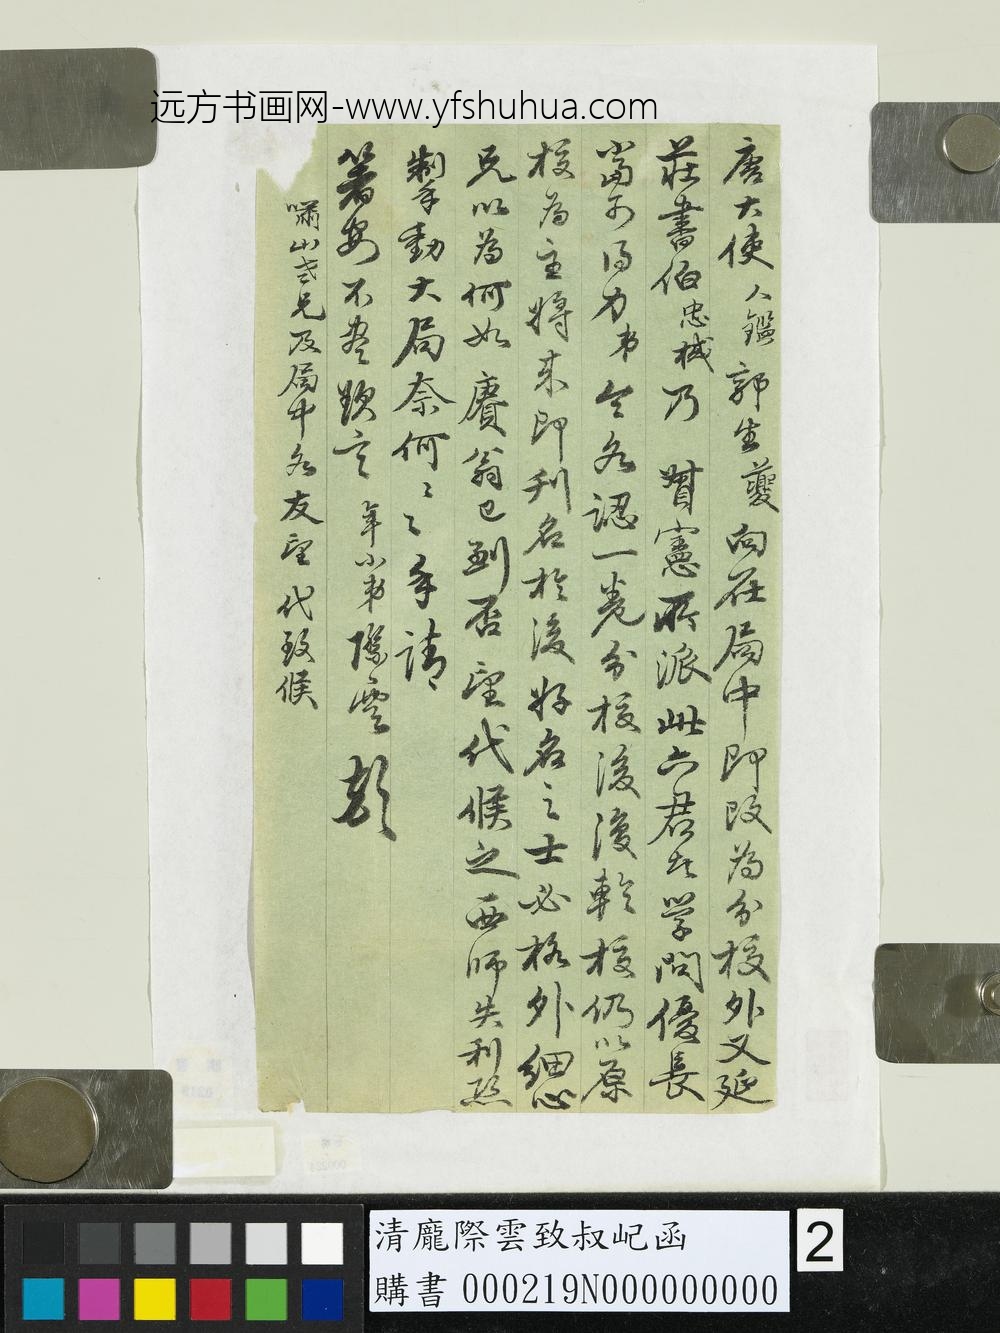 远方书画网-www.yfshuhua.com
唐大使人鑑郭生夔向在局中即改為分校外又延
莊書伯忠棫乃 賢憲所派此六君者學問優長
當可得力弟今各認一卷分校後復輪校仍以原
校為主將來即刊名於後好名之士必格外細心
兄以為何如賡翁已到否望代候之西師失利恐
掣動大局奈何〻〻手請
箸安不盡欵言 年小弟際雲頓
嘯山老兄及局中各友望代致候
清龐際雲致叔屺函
購書 000219N000000000
2